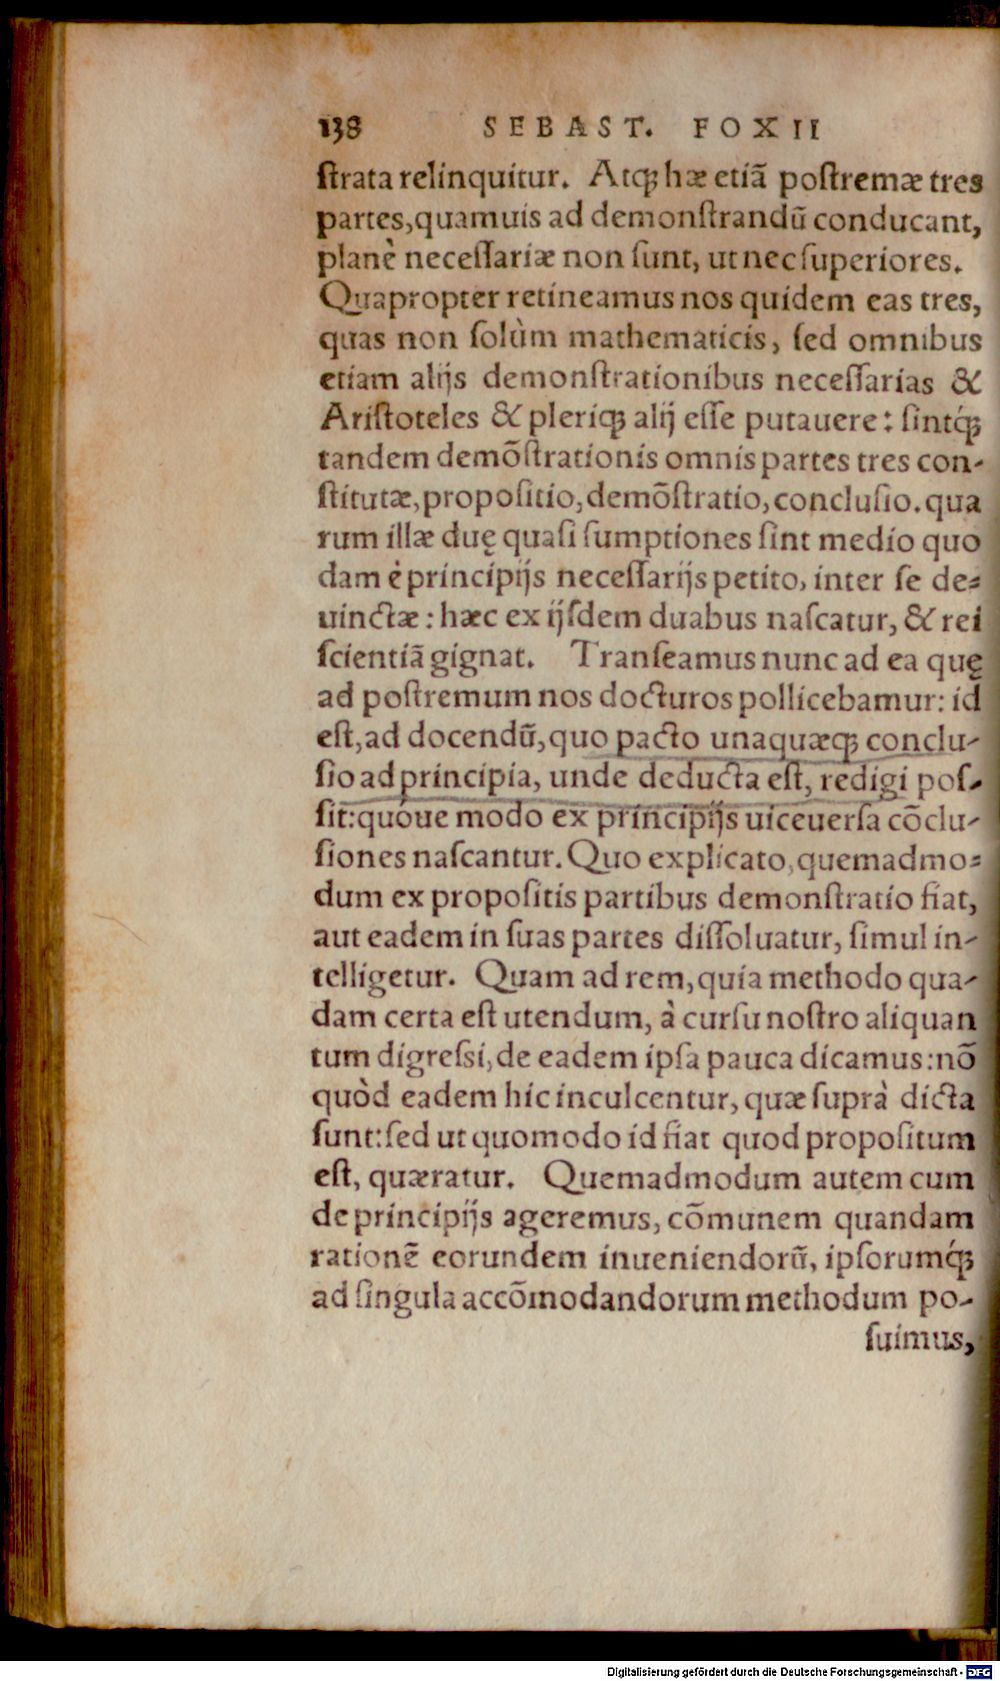 138 SEBAST. FOXII
ſtrata relinquitur. Atqꝫ hæ etiã poſtremæ tres
partes, quamuis ad demonſtrandũ conducant,
planè neceſſariæ non ſunt, ut nec ſuperiores.
Quapropter retineamus nos quidem eas tres,
quas non ſolùm mathematicis, ſed omnibus
etiam alijs demonſtrationibus neceſſarias &
Ariſtoteles & pleriqꝫ alij eſſe putauere: ſintq́ꝫ
tandem demõſtrationis omnis partes tres con-
ſtitutæ, propoſitio, demõſtratio, concluſio. qua
rum illæ duę quaſi ſumptiones ſint medio quo
dam è principijs neceſſarijs petito, inter ſe de-
uinctæ: hæc ex ijſdem duabus naſcatur, & rei
ſcientiã gignat. Tranſeamus nunc ad ea quę
ad poſtremum nos docturos pollicebamur: id
eſt, ad docendũ, quo pacto unaquæqꝫ conclu-
ſio ad principia, unde deducta eſt, redigi poſ-
ſit: quóue modo ex principijs uiceuerſa cõclu-
ſiones naſcantur. Quo explicato, quemadmo-
dum ex propoſitis partibus demonſtratio fiat,
aut eadem in ſuas partes diſſoluatur, ſimul in-
telligetur. Quam ad rem, quia methodo qua-
dam certa eſt utendum, à curſu noſtro aliquan
tum digreſsi, de eadem ipſa pauca dicamus: nõ
quòd eadem hic inculcentur, quæ ſuprà dicta
ſunt: ſed ut quomodo id fiat quod propoſitum
eſt, quæratur. Quemadmodum autem cum
de principijs ageremus, cõmunem quandam
rationẽ eorundem inueniendorũ, ipſorumq́ꝫ
ad ſingula accõmodandorum methodum po-
ſuimus,
Digitalisierung gefördert durch die Deutsche Forschungsgemeinschaft - DFG